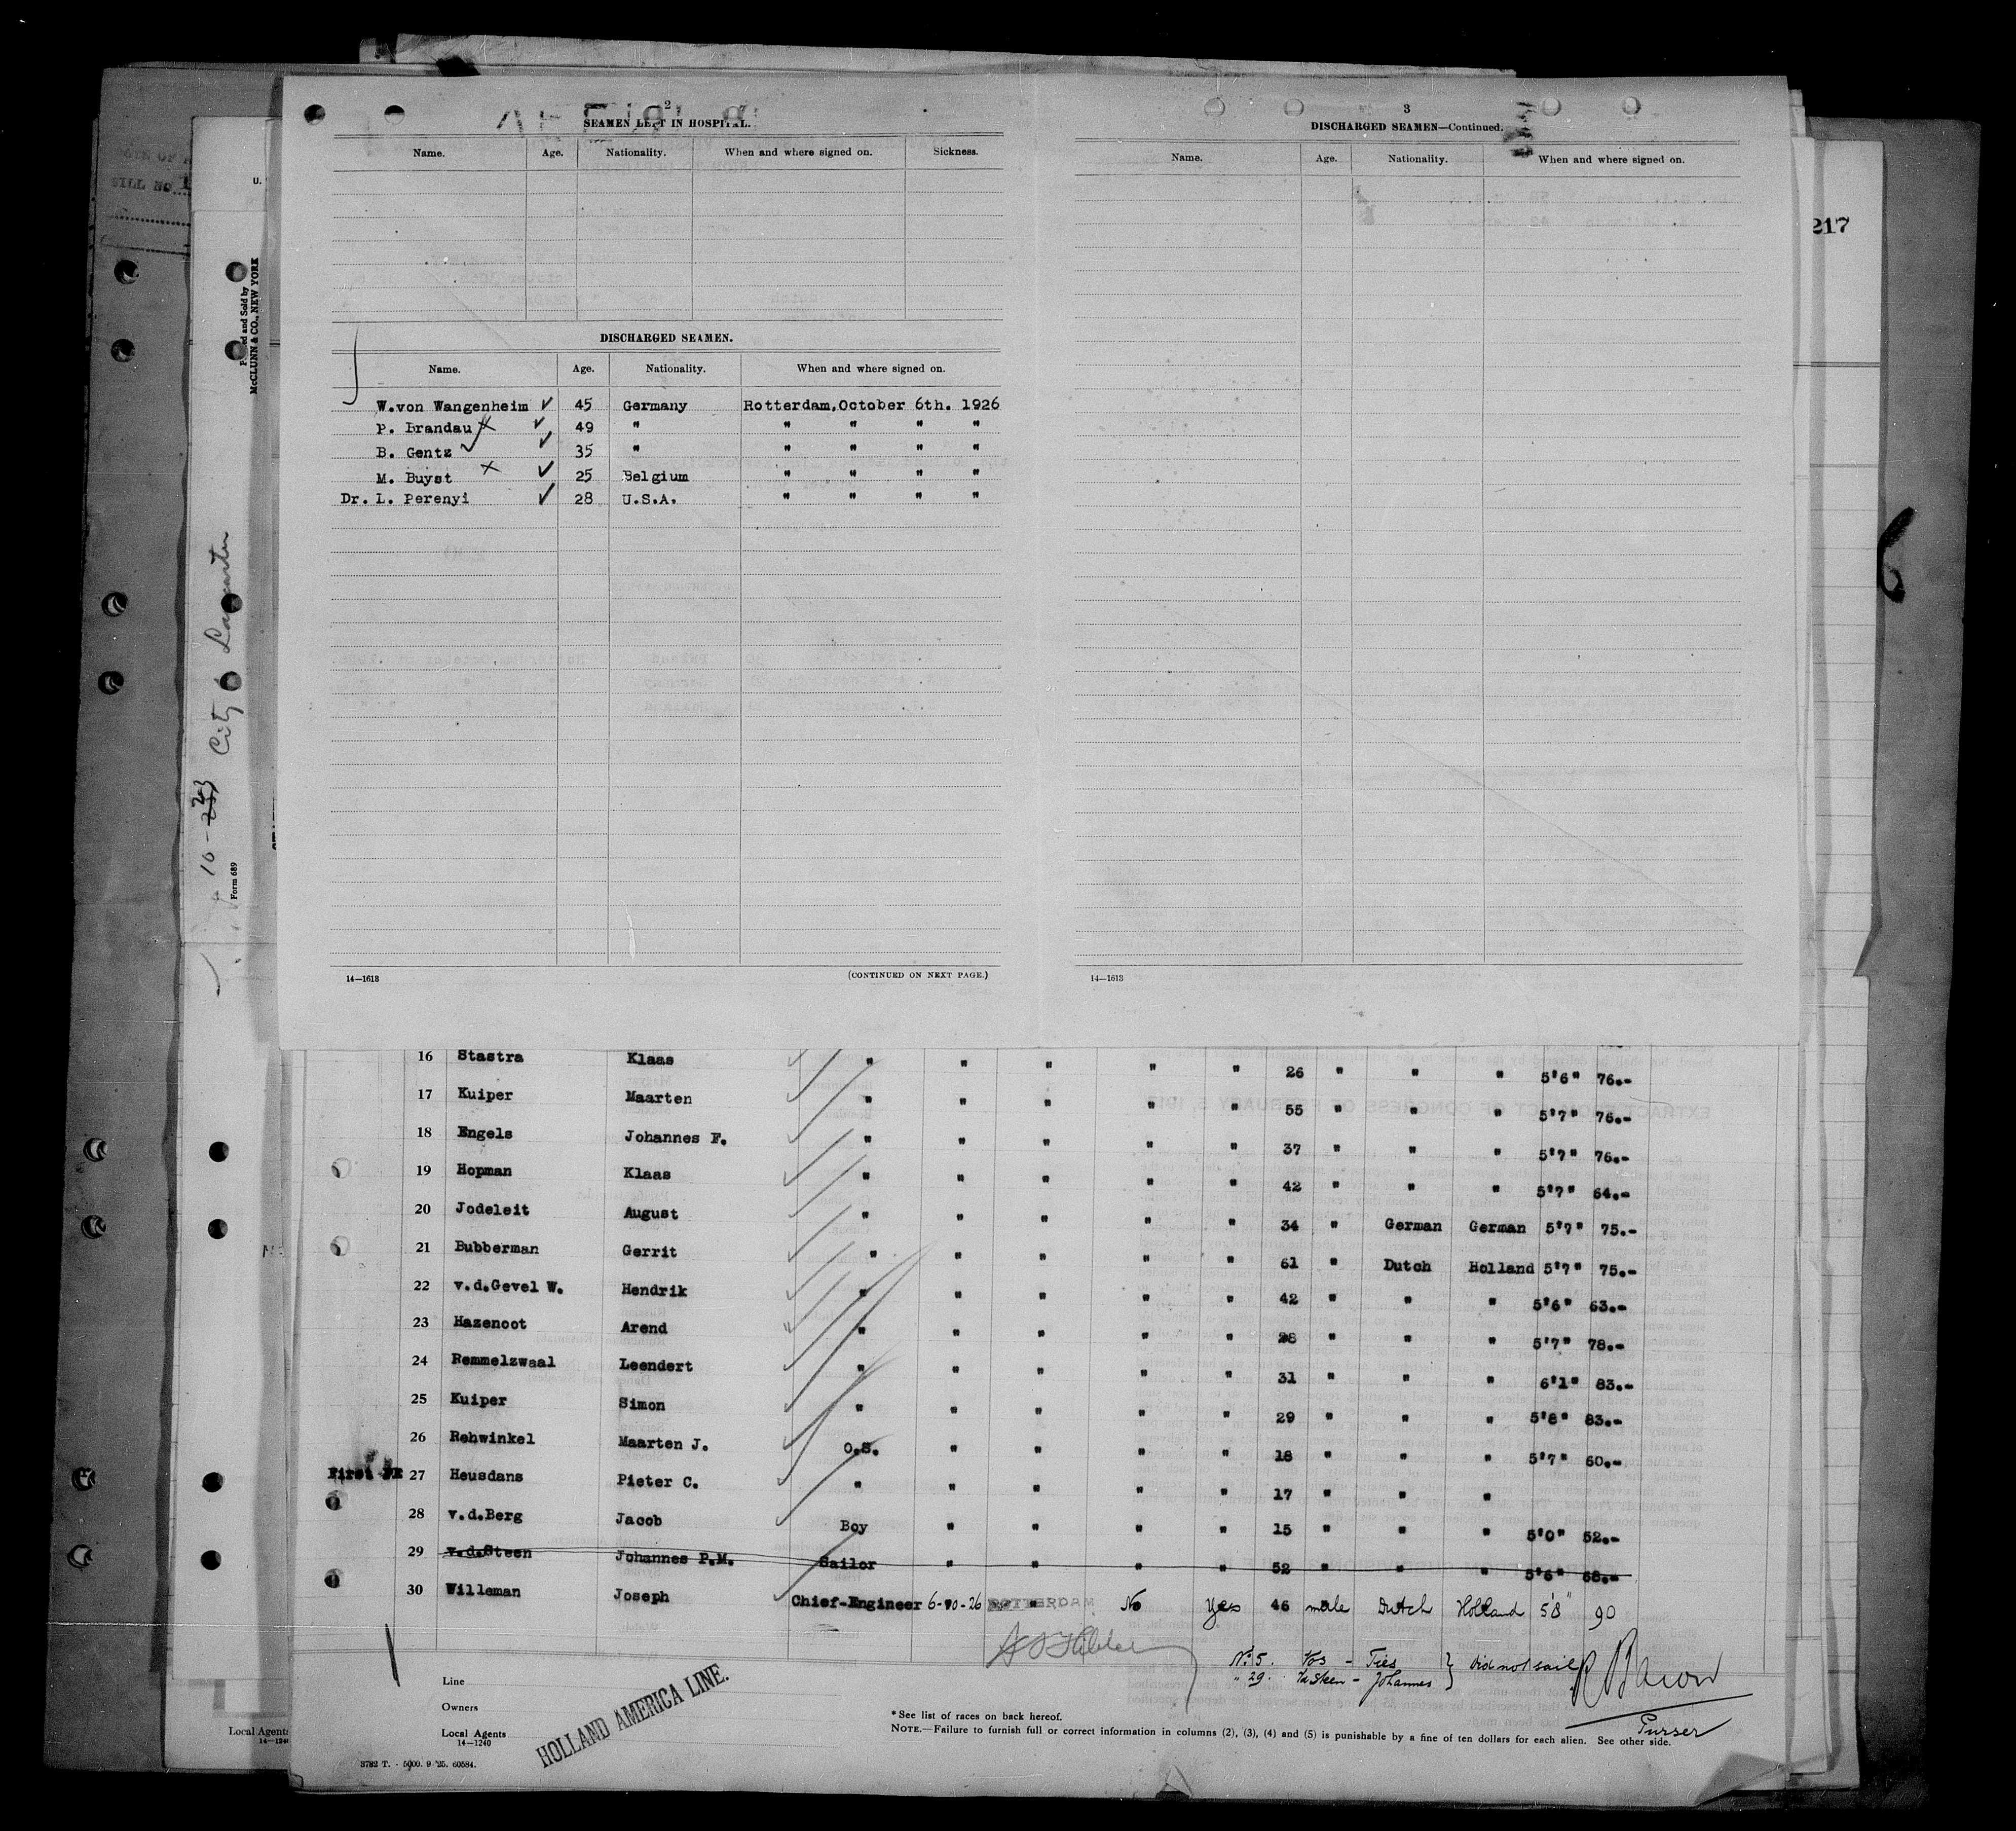 2
SEAMEN LEFT IN HOSPITAL.
Name. Age. Nationality. When and where signed on. Sickness.
DISCHARGED SEAMEN.
Name. Age. Nationality. When and where signed on.
W.von Wangenheim ✓ 45 Germany Rotterdam,October 6th. 1926
P. Brandau x ✓ 49 " " " " "
B. Gentz ✓ ✓ 35 " " " " "
M. Buyst x ✓ 25 Belgium " " " "
Dr. L. Perenyi ✓ 28 U.S.A. " " " "
14—1613 (CONTINUED ON NEXT PAGE.)
3
DISCHARGED SEAMEN—Continued.
Name. Age. Nationality. When and where signed on.
14—1613
217
U.
McCLUNN & CO., NEW YORK
City Lancaster
Form 689
16 Stastra Klaas " " " " " 26 " " " 5'6" 76.-
17 Kuiper Maarten " " " " " 55 " " " 5'7" 76.-
18 Engels Johannes F. " " " " " 37 " " " 5'7" 76.-
19 Hopman Klaas " " " " " 42 " " " 5'7" 64.-
20 Jodeleit August " " " " " 34 " German German 5'7" 75.-
21 Bubberman Gerrit " " " " " 61 " Dutch Holland 5'7" 75.-
22 v.d.Gevel W. Hendrik " " " " " 42 " " " 5'6" 63.-
23 Hazenoot Arend " " " " " 28 " " " 5'7" 78.-
24 Remmelzwaal Leendert " " " " " 31 " " " 6'1" 83.-
25 Kuiper Simon " " " " " 29 " " " 5'8" 83.-
26 Rehwinkel Maarten J. O.S. " " " " 18 " " " 5'7" 60.-
First 27 Heusdans Pieter C. " " " " " 17 " " "
28 v.d.Berg Jacob Boy " " " " 15 " " " 5'0" 52.-
29 v.d.Steen Johannes P.M. Sailor " " " " 52 " " " 5'6" 68.-
30 Willeman Joseph Chief-Engineer 6-10-26 ROTTERDAM No Yes 46 male Dutch Holland 5'8" 90
No 5. Vos - Ties } did not sail
" 29. Johannes
Purser
Line
Owners
Local Agents
14—1240
HOLLAND AMERICA LINE.
* See list of races on back hereof.
NOTE.—Failure to furnish full or correct information in columns (2), (3), (4) and (5) is punishable by a fine of ten dollars for each alien. See other side.
3782 T. - 5000. 9 '25. 60584.
Local Agents